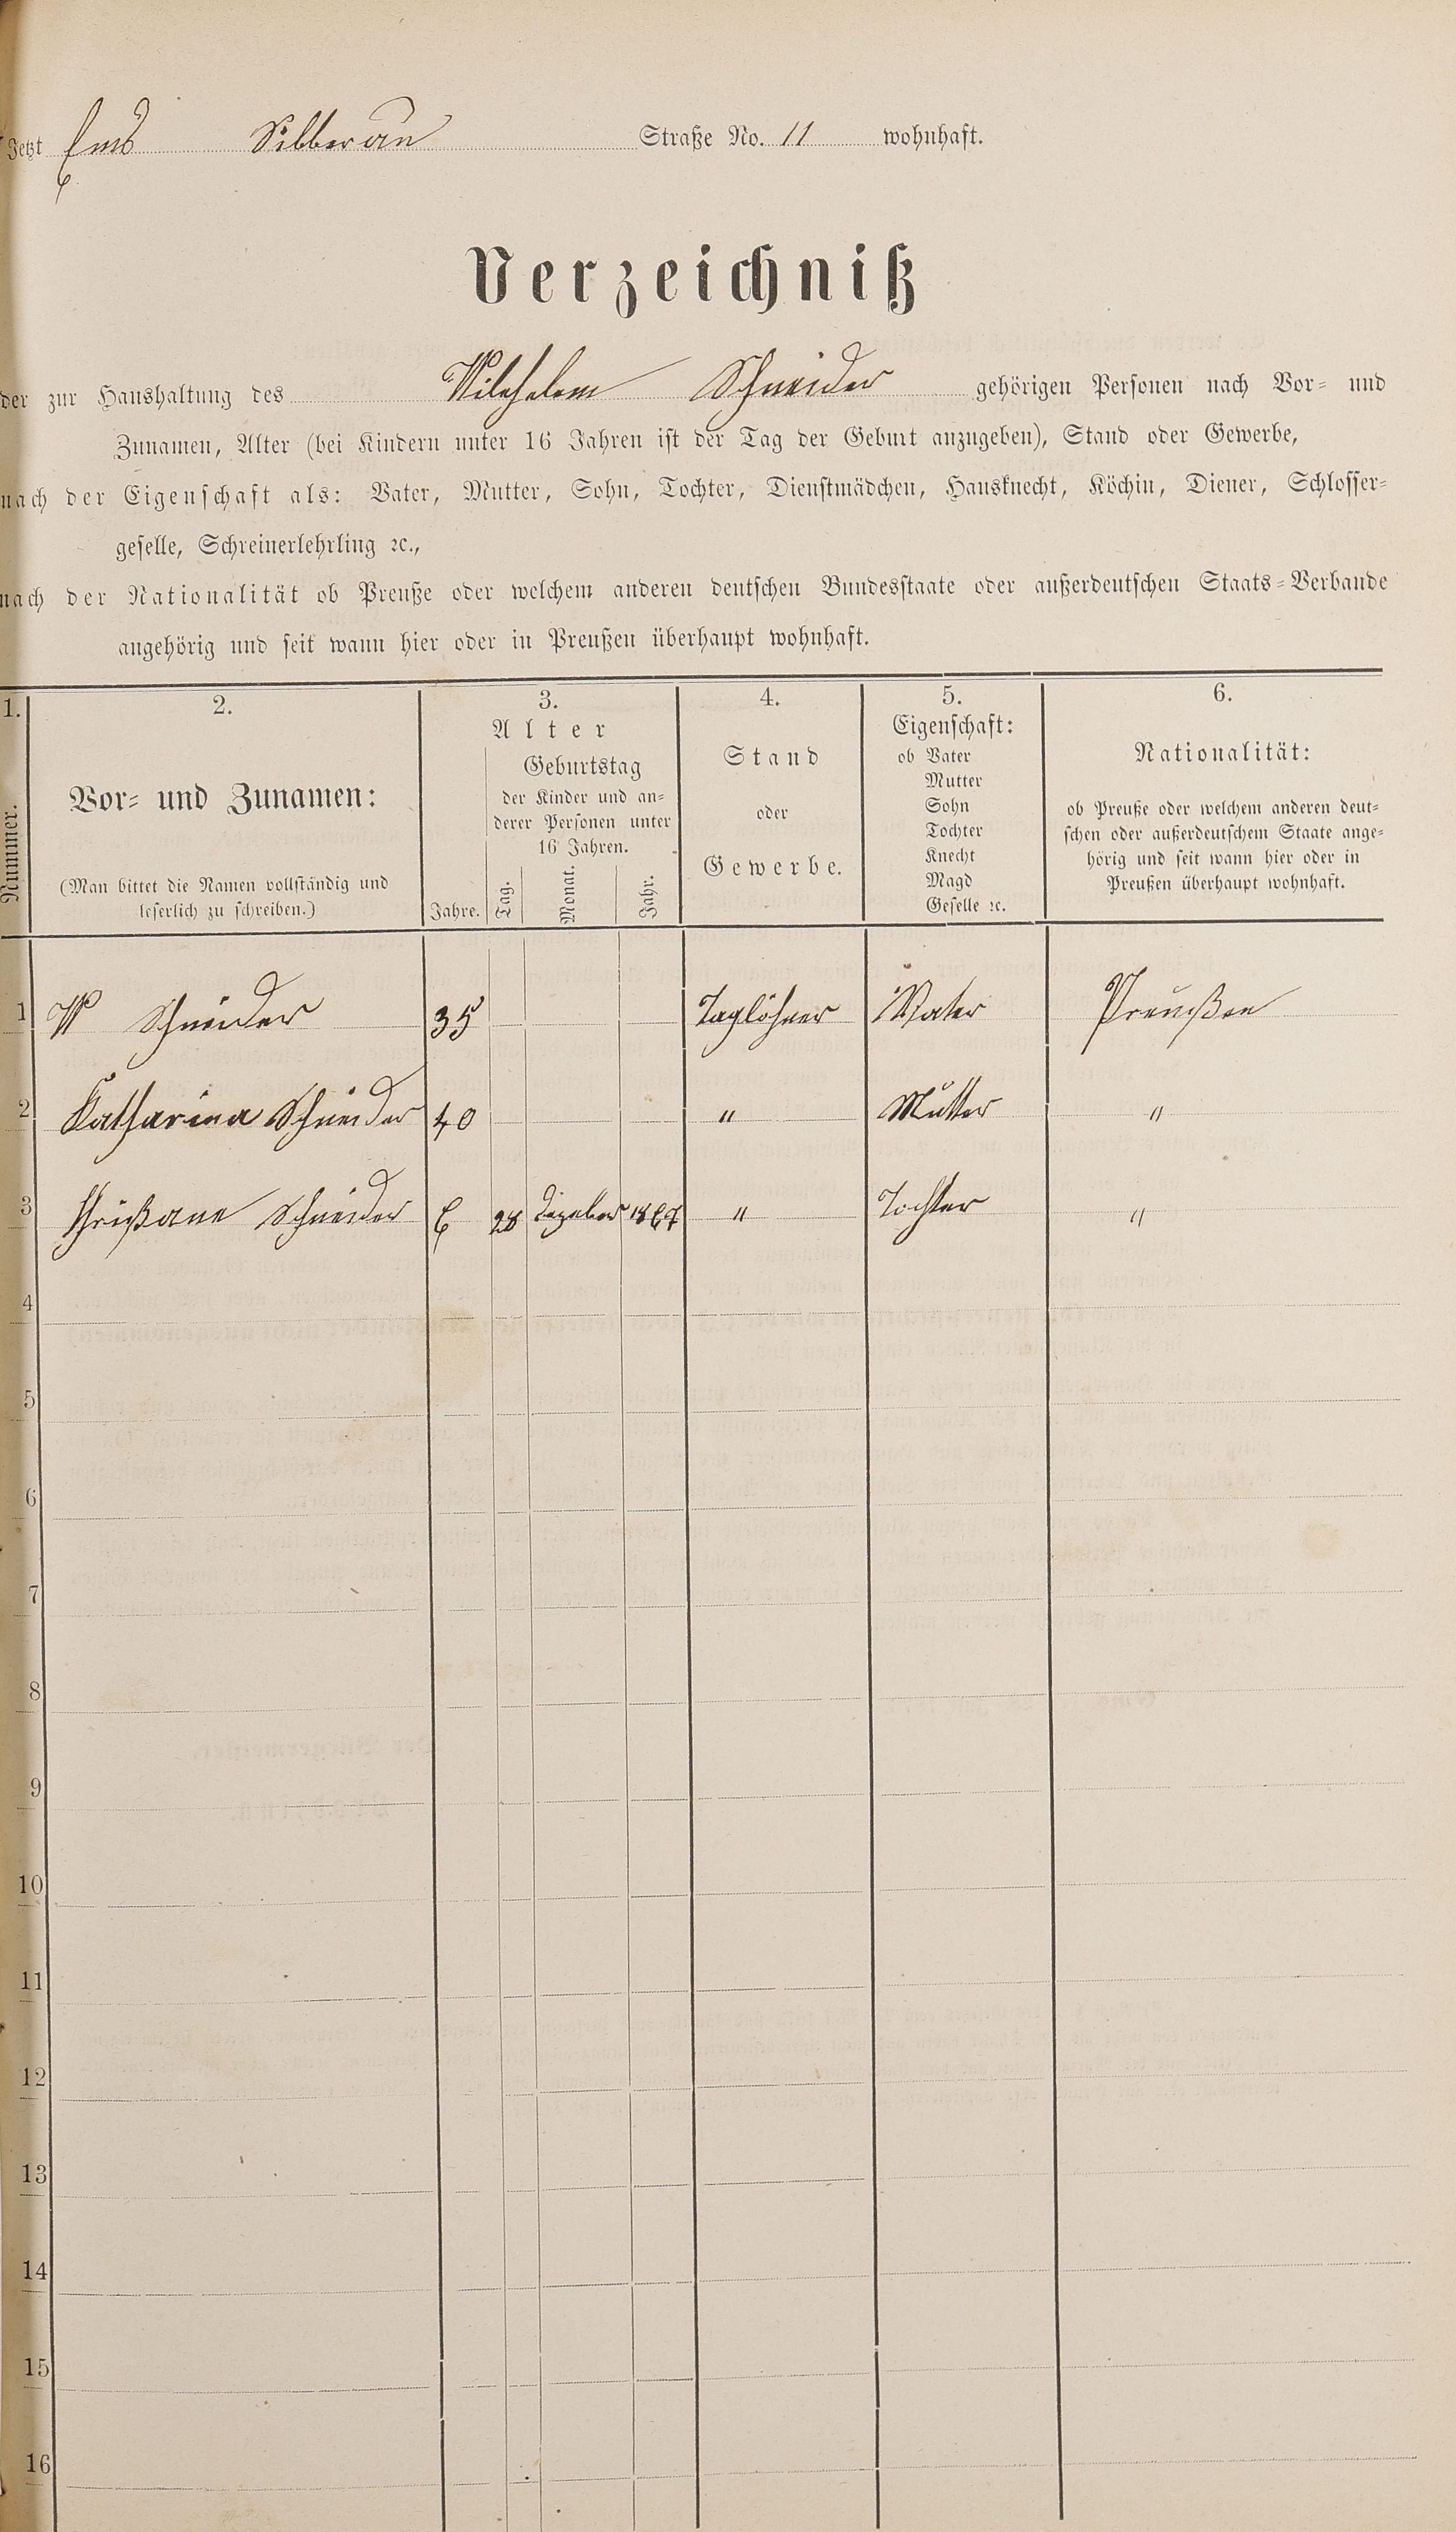 Jetzt Ems Silberau Straße No. 11 wohnhaft.
Verzeichniß
der zur Haushaltung des Wilehelem Schneider gehörigen Personen nach Vor- und
Zunamen, Alter (bei Kindern unter 16 Jahren ist der Tag der Geburt anzugeben), Stand oder Gewerbe,
nach der Eigenschaft als: Vater, Mutter, Sohn, Tochter, Dienstmädchen, Hausknecht, Köchin, Diener, Schlosser-
geselle, Schreinerlehrling ꝛc.,
nach der Nationalität ob Preuße oder welchem anderen deutschen Bundesstaate oder außerdeutschen Staats-Verbande
angehörig und seit wann hier oder in Preußen überhaupt wohnhaft.
1. 2. 3. 4. 5. 6.
Nummer.
Vor- und Zunamen:
(Man bittet die Namen vollständig und
leserlich zu schreiben.)
Alter
Geburtstag
der Kinder und an-
derer Personen unter
16 Jahren.
Jahre. Tag. Monat. Jahr.
Stand
oder
Gewerbe.
Eigenschaft:
ob Vater
Mutter
Sohn
Tochter
Knecht
Magd
Geselle ꝛc.
Nationalität:
ob Preuße oder welchem anderen deut-
schen oder außerdeutschem Staate ange-
hörig und seit wann hier oder in
Preußen überhaupt wohnhaft.
1 W Schneider 35 Taglöhner Vater Preußen
2 Katharina Schneider 40 " Mutter "
3 Schneider 6 28 1867 " Tochter "
4
5
6
7
8
9
10
11
12
13
14
15
16